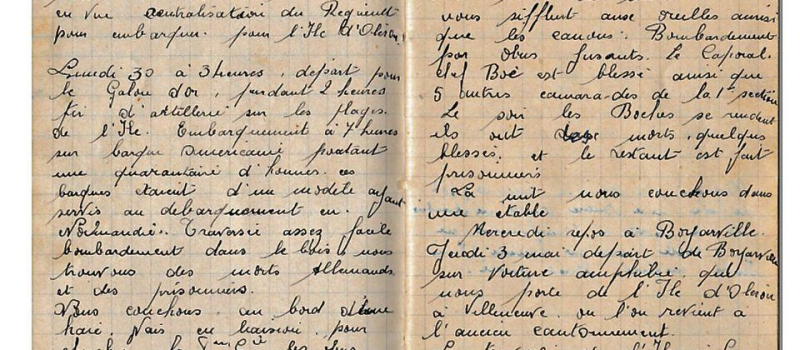 en vue centralisation du Requient
pour embarquer. pour l'Ile d'Oleron.
Lundi 30 à 3 heures, depart pour
le Galon d'or, pendant 2 heures
tir d'artillerie sur les plages.
de l'Ile. Embarquement à 7 heures
sur barque americaine portant
une quarantaine d'hommes. ces
barques étaient d'un modele ayant
servis au debarquement en.
Normandie. Traversée assez facile
bombardement dans le bois, nous
trouvons des morts Allemands
et des prisonniers.
Nous couchons au bord d'une
haie. Vais en liaison, pour
les
vous sifflent aux oreilles aussi
que les canons. Bombardement
par Obus fusants. Le Caporal.
chef Boé est blessé ainsi que
5 autres camarades de la 1ere section
Le soir les Boches se rendent
ils ont morts, quelques
blessés. et le restant est fait
prisonniers
La nuit nous couchons dans
une etable
Mercredi repos à Boyarville.
Jeudi 3 mai depart de Boyarville
sur Voiture amphibie, qui
nous porte de l'Ile d'Oleron
à Villeneuve. ou l'on revient à
l'ancien cantonnement.